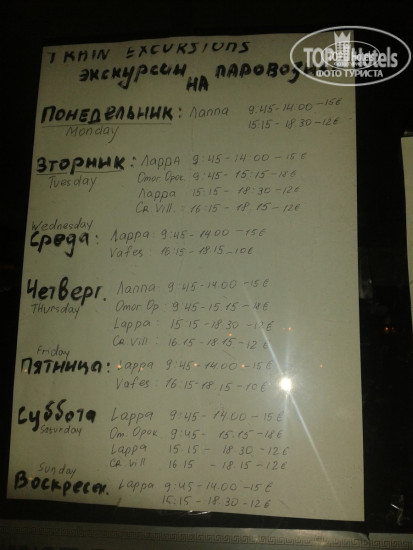 TRAIN EXCURSIONS
ЭКСКУРСИИ НА ПАРОВОЗЕ
TOP Hotels
ФОТО ТУРИСТА
ПОНЕДЕЛЬНИК: Лаппа 9:45-14:00-15€
Monday 15:15-18.30-12€
ВТОРНИК: Лappa 9:45-14:00-15€
Tuesday Omer. Орок. 9:45-15.15-18€
Лappa 15:15-18:30-12€
Cr. Vill.: 16:15-18.15-12€
Wednesday
Среда: Лappa 9:45-14.00-15€
Vafes: 16:15-18.15-10€
Четверг. Лаппа: 9:45-14.00-15€
Thursday Omer. Op: 9:45-15.15-18€
Lappa: 15:15-18.30-12€
Cr. Vill: 16.15-18.15-12€
Friday
Пятница: Lappa 9:45-14.00-15€
Vafes 16.15-18.15-10€
Суббота Lappa 9:45-14.00-15€
Saturday Om. Орок 9:45-15.15-18€
Lappa 15.15-18.30-12€
Cr. Vill 16:15-18.15-12€
Sunday
Воскресен. Lappa 9:45-14.00-15€
15:15-18.30-12€